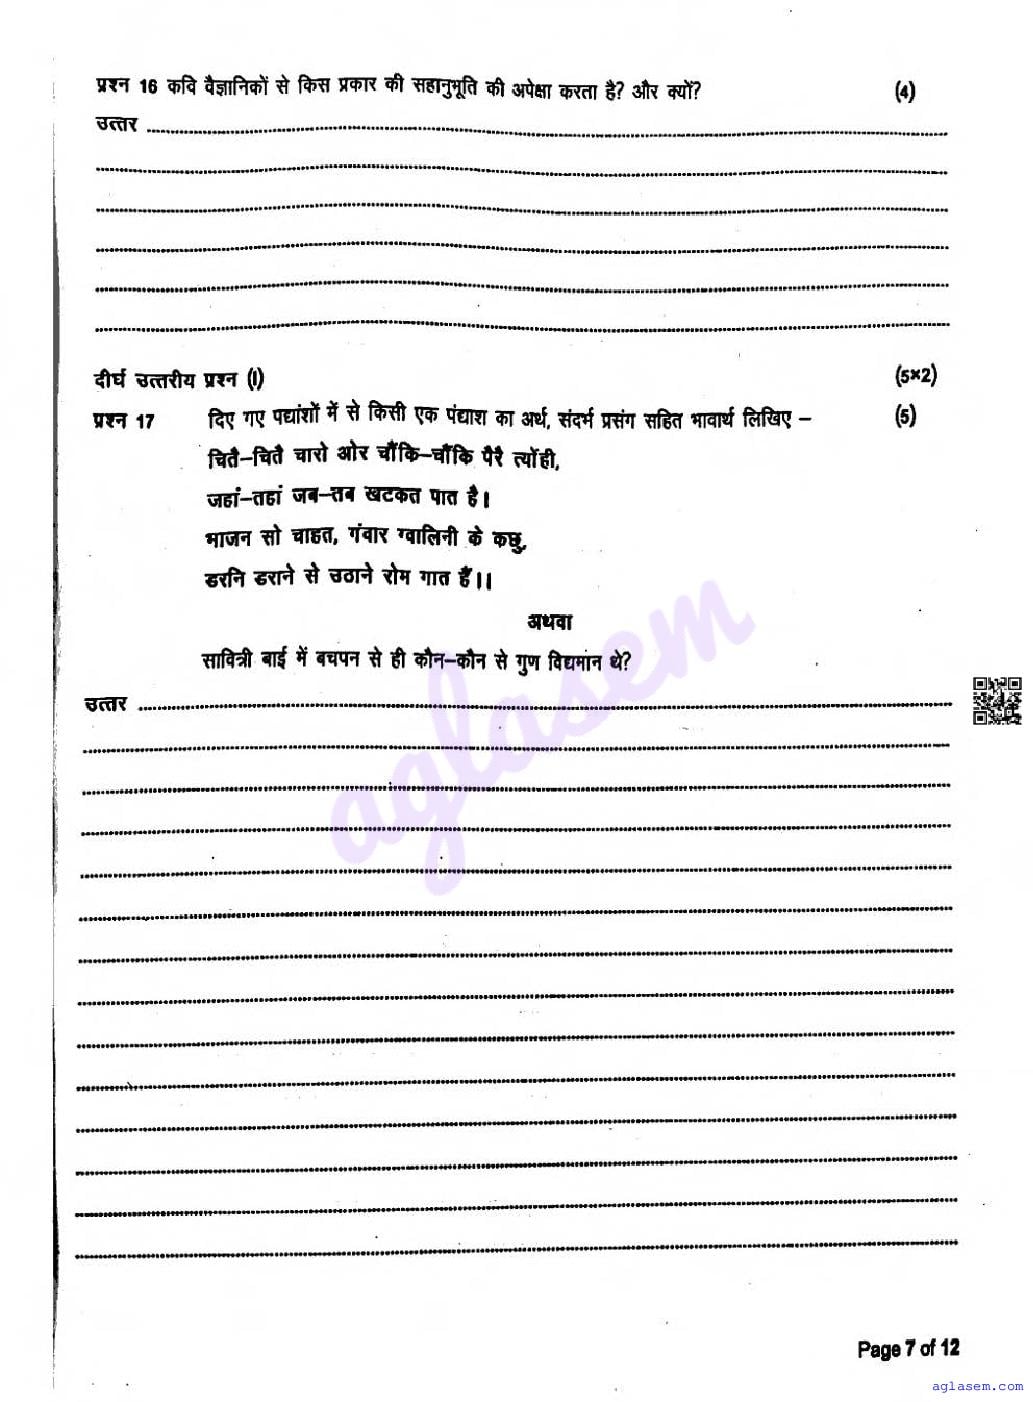 प्रश्न 16 कवि वैज्ञानिकों से किस प्रकार की सहानुभूति की अपेक्षा करता है? और क्यों? (4)
उत्तर
दीर्घ उत्तरीय प्रश्न (I) (5×2)
प्रश्न 17 दिए गए पद्यांशों में से किसी एक पंद्याश का अर्थ, संदर्भ प्रसंग सहित भावार्थ लिखिए – (5)
चितै–चितै चारो ओर चौंकि–चौंकि पैरै त्योंही,
जहां–तहां जब–तब खटकत पात है।
भाजन सो चाहत, गंवार ग्वालिनी के कछु,
डरनि डराने से उठाने रोम गात हैं।।
अथवा
सावित्री बाई में बचपन से ही कौन–कौन से गुण विद्यमान थे?
उत्तर
aglasem
Page 7 of 12
aglasem.com